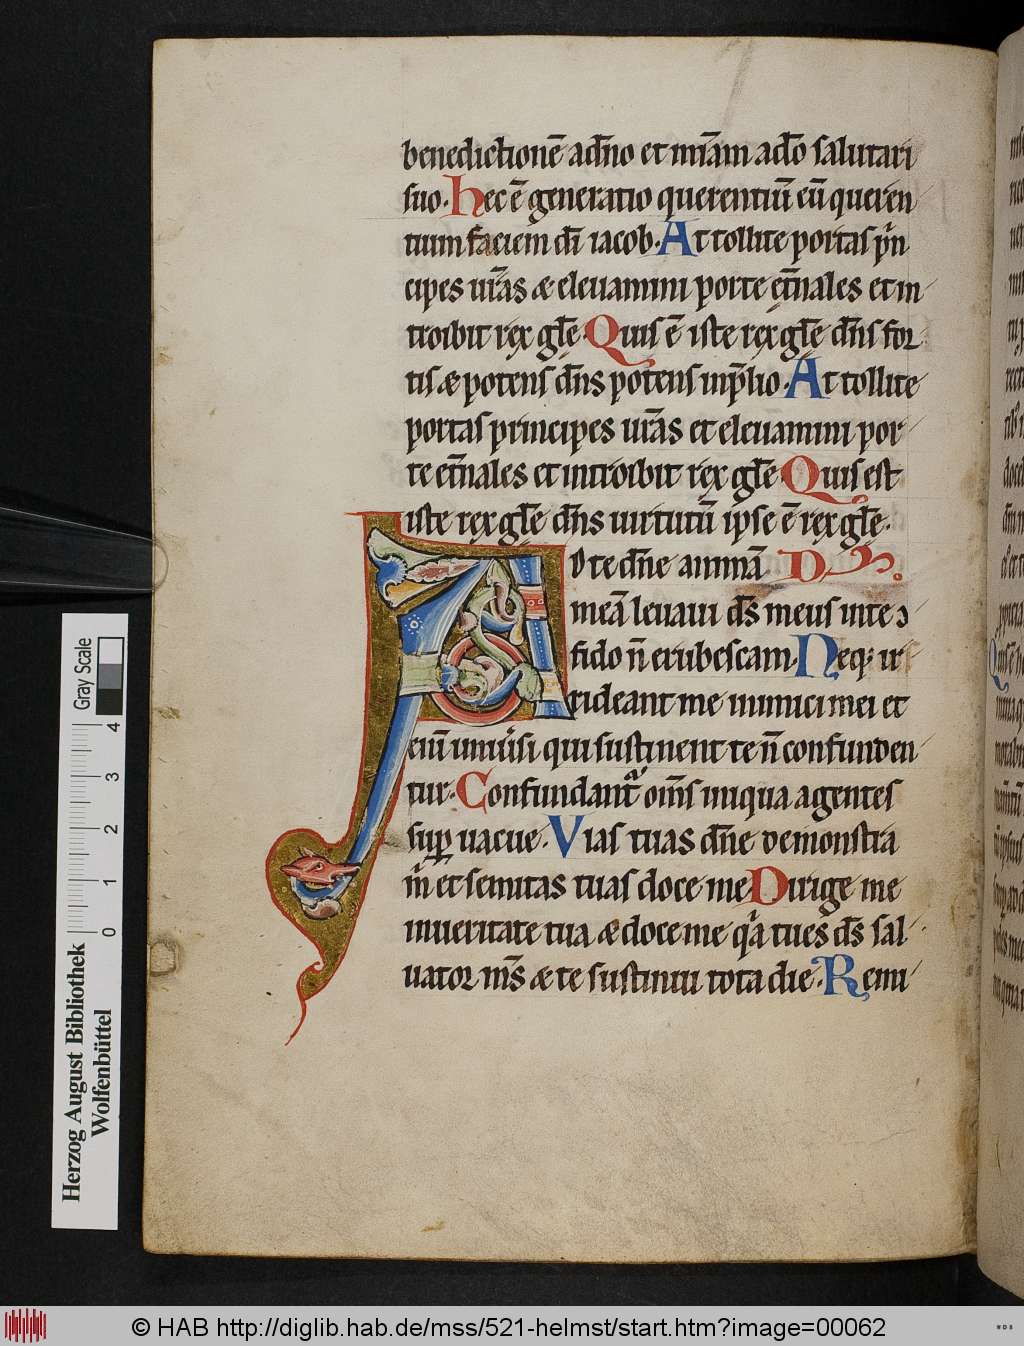 benedictionē ad̄no et mīam ad̄o salutari
suo. Hec ē generatio querentiū eū queren
tium faciem dī iacob. At tollite portas prin
cipes ūras & eleuamini porte et̄nales et in
troibit rex gl̄e Quis ē iste rex gl̄e dn̄s for
tis & potens dn̄s potens in p̄lio. At tollite
portas principes ūras et eleuamini por
te et̄nales et introibit rex gl̄e Quis est
iste rex gl̄e dn̄s uirtutū ipse ē rex gl̄e.
AD te dn̄e animā
meā leuaui ds̄ meus in te ɔ
fido n̄ erubescam. Neq; ir
rideant me inimici mei et
enī uniūsi qui sustinent te n̄ confunden
tur. Confundant᷑ om̄s iniqua agentes
sup̱ uacue. Vias tuas dn̄e demonstra
m̄ et semitas tuas doce me Dirige me
in ueritate tua & doce me qᷓa tu es ds̄ sal
uator ms̄ & te sustinui tota die. Remi
Gray Scale
0 1 2 3 4
Herzog August Bibliothek
Wolfenbüttel
© HAB http://diglib.hab.de/mss/521-helmst/start.htm?image=00062